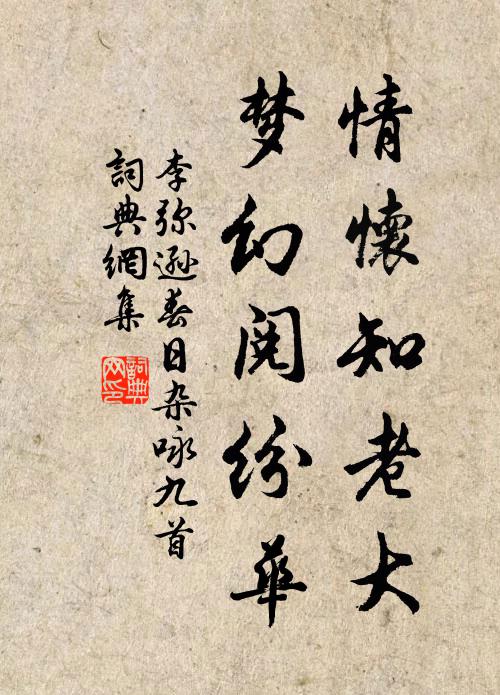 情懷知老大
梦幻阅纷華
李弥遜春日杂咏九首
詞典網集
詞典网印